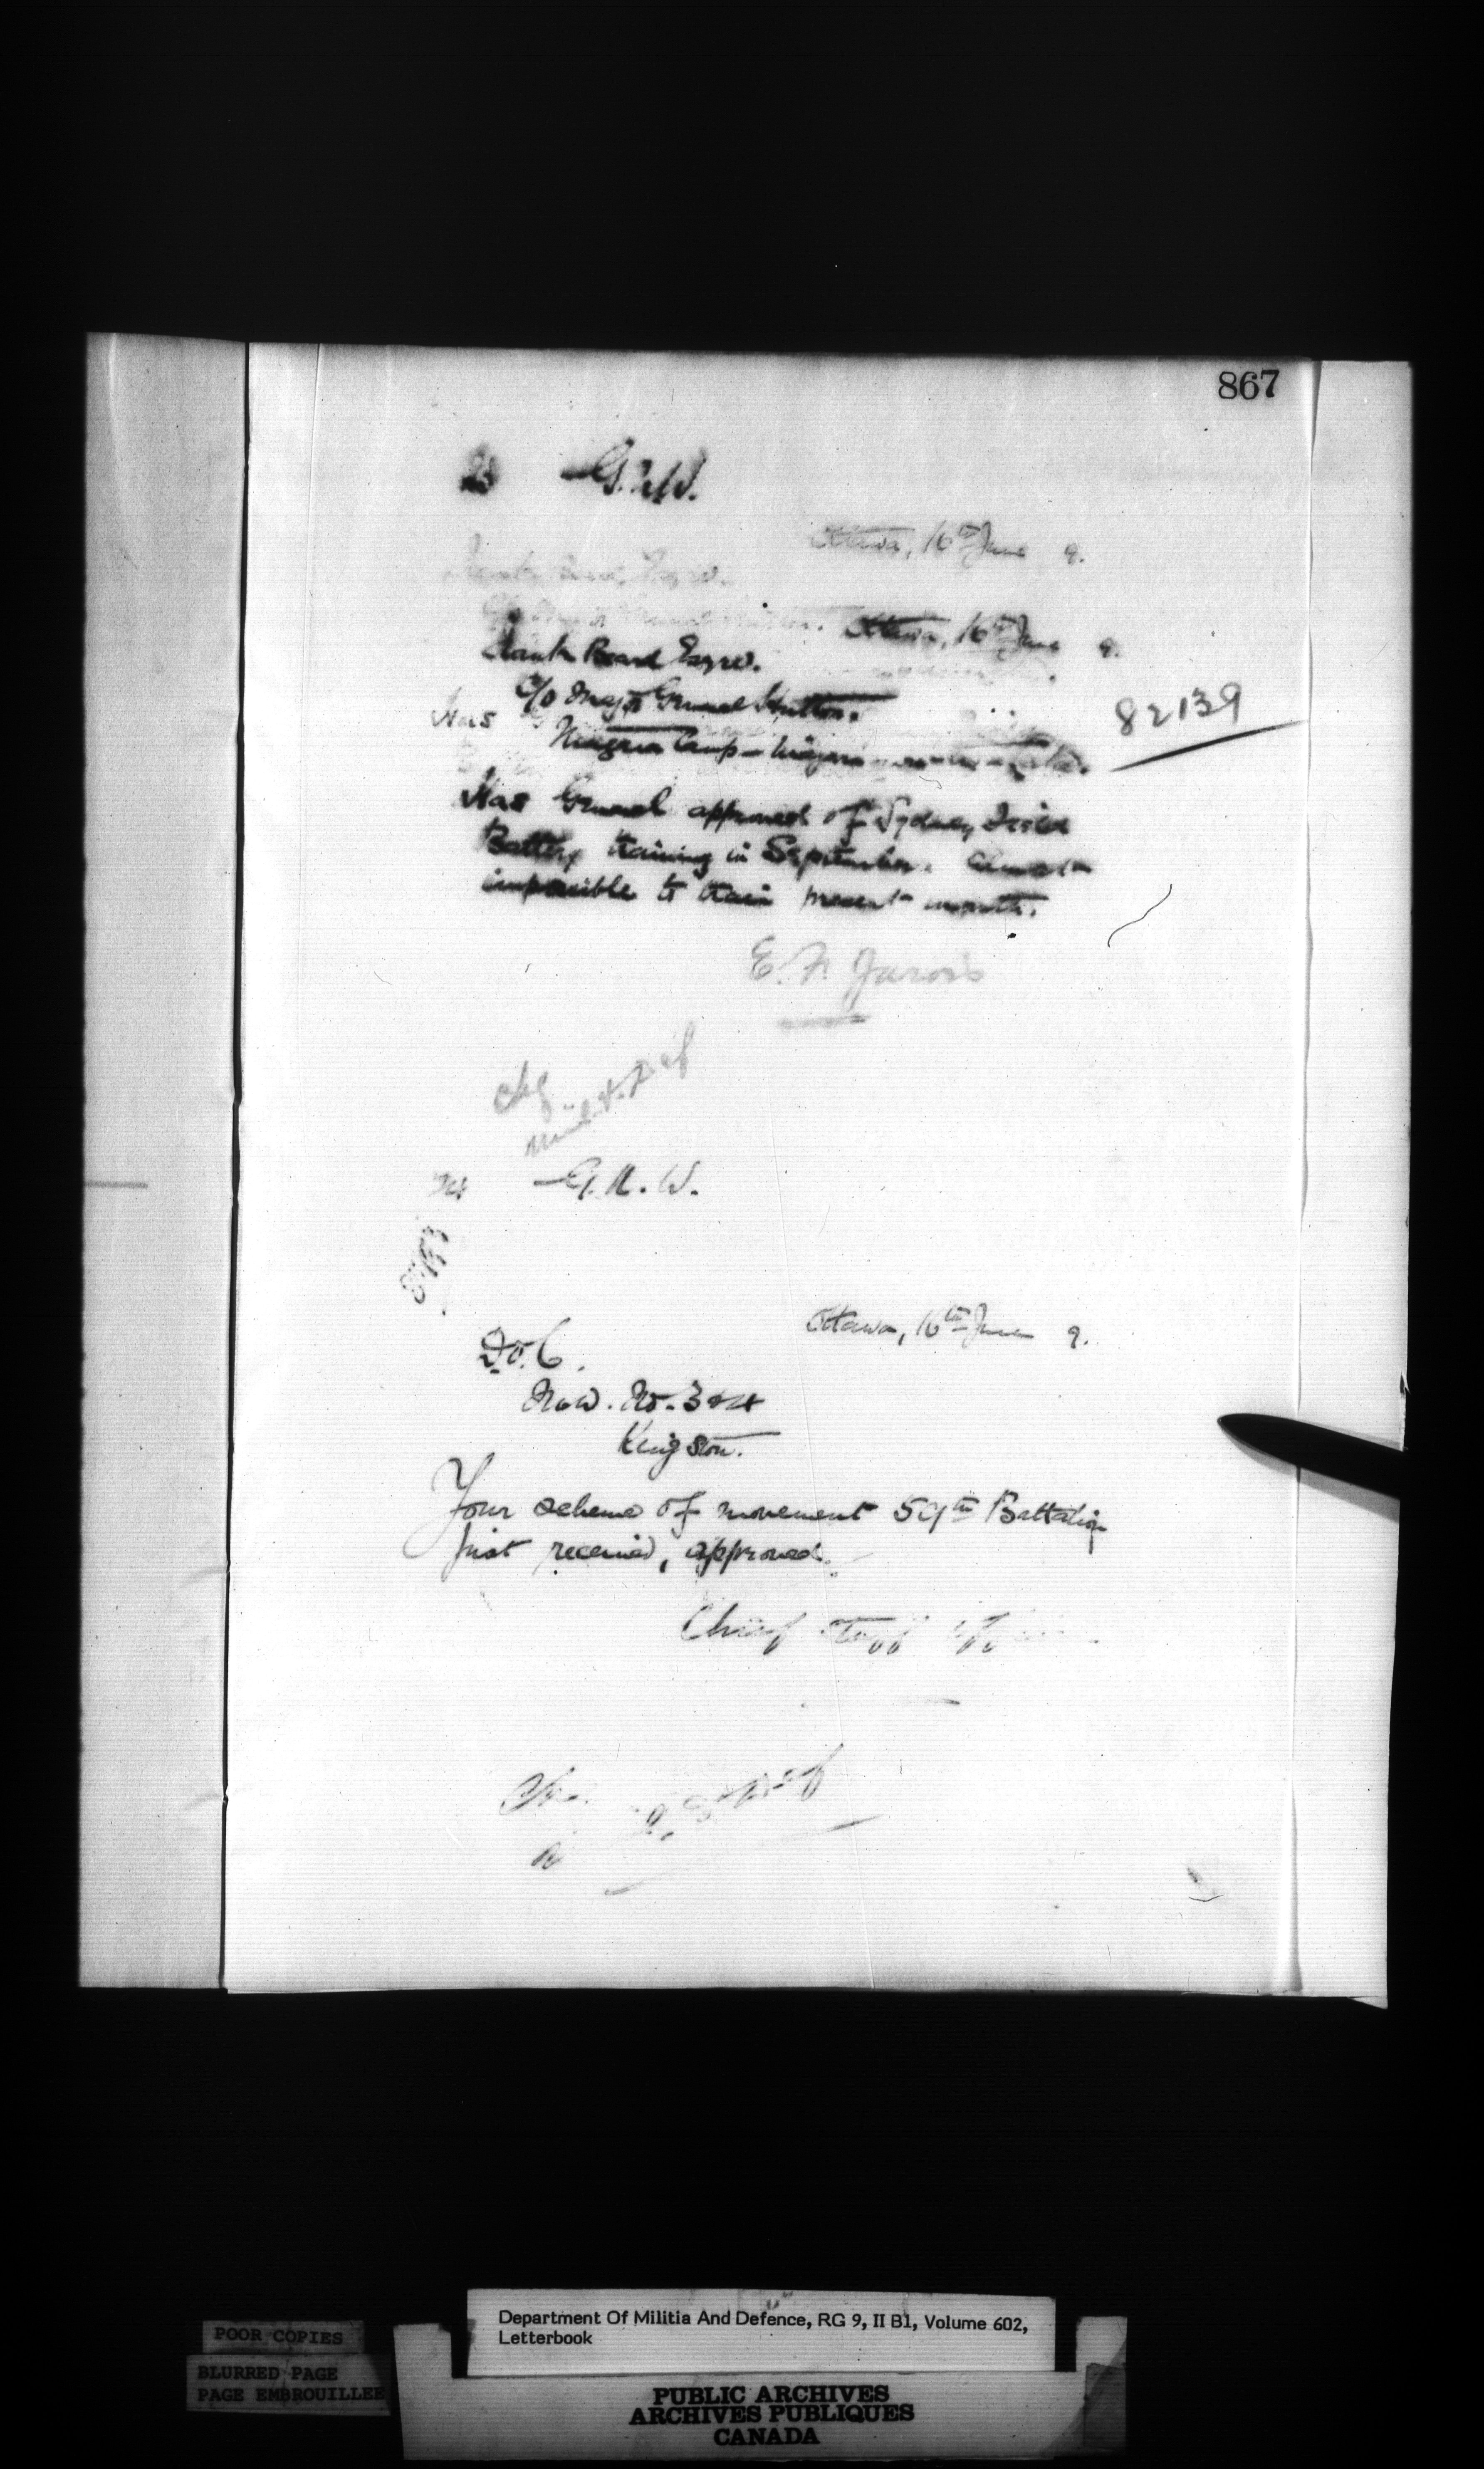 867
G.N.W.
Ottawa, 16th June 9.
Ottawa, 16th June 9.
Frank Beard Esqre.
C/o Major General Hutton.
82139
Has
Niagara Camp - Niagara-on-the-Lake.
Has General approved of Sydney Field
Battery training in September. Almost
impossible to train present month.
E. F. Jarvis
Chg
Mil. & Def
G.N.W.
Ottawa, 16th June 9.
D.O.C.
M.D. No. 3 & 4
Kingston.
Your scheme of movement 59th Battalion
just received, approved.
Chief Staff Officer
Chg.
& Def
Department Of Militia And Defence, RG 9, II B1, Volume 602,
Letterbook
POOR COPIES
BLURRED PAGE
PAGE EMBROUILLEE
PUBLIC ARCHIVES
ARCHIVES PUBLIQUES
CANADA